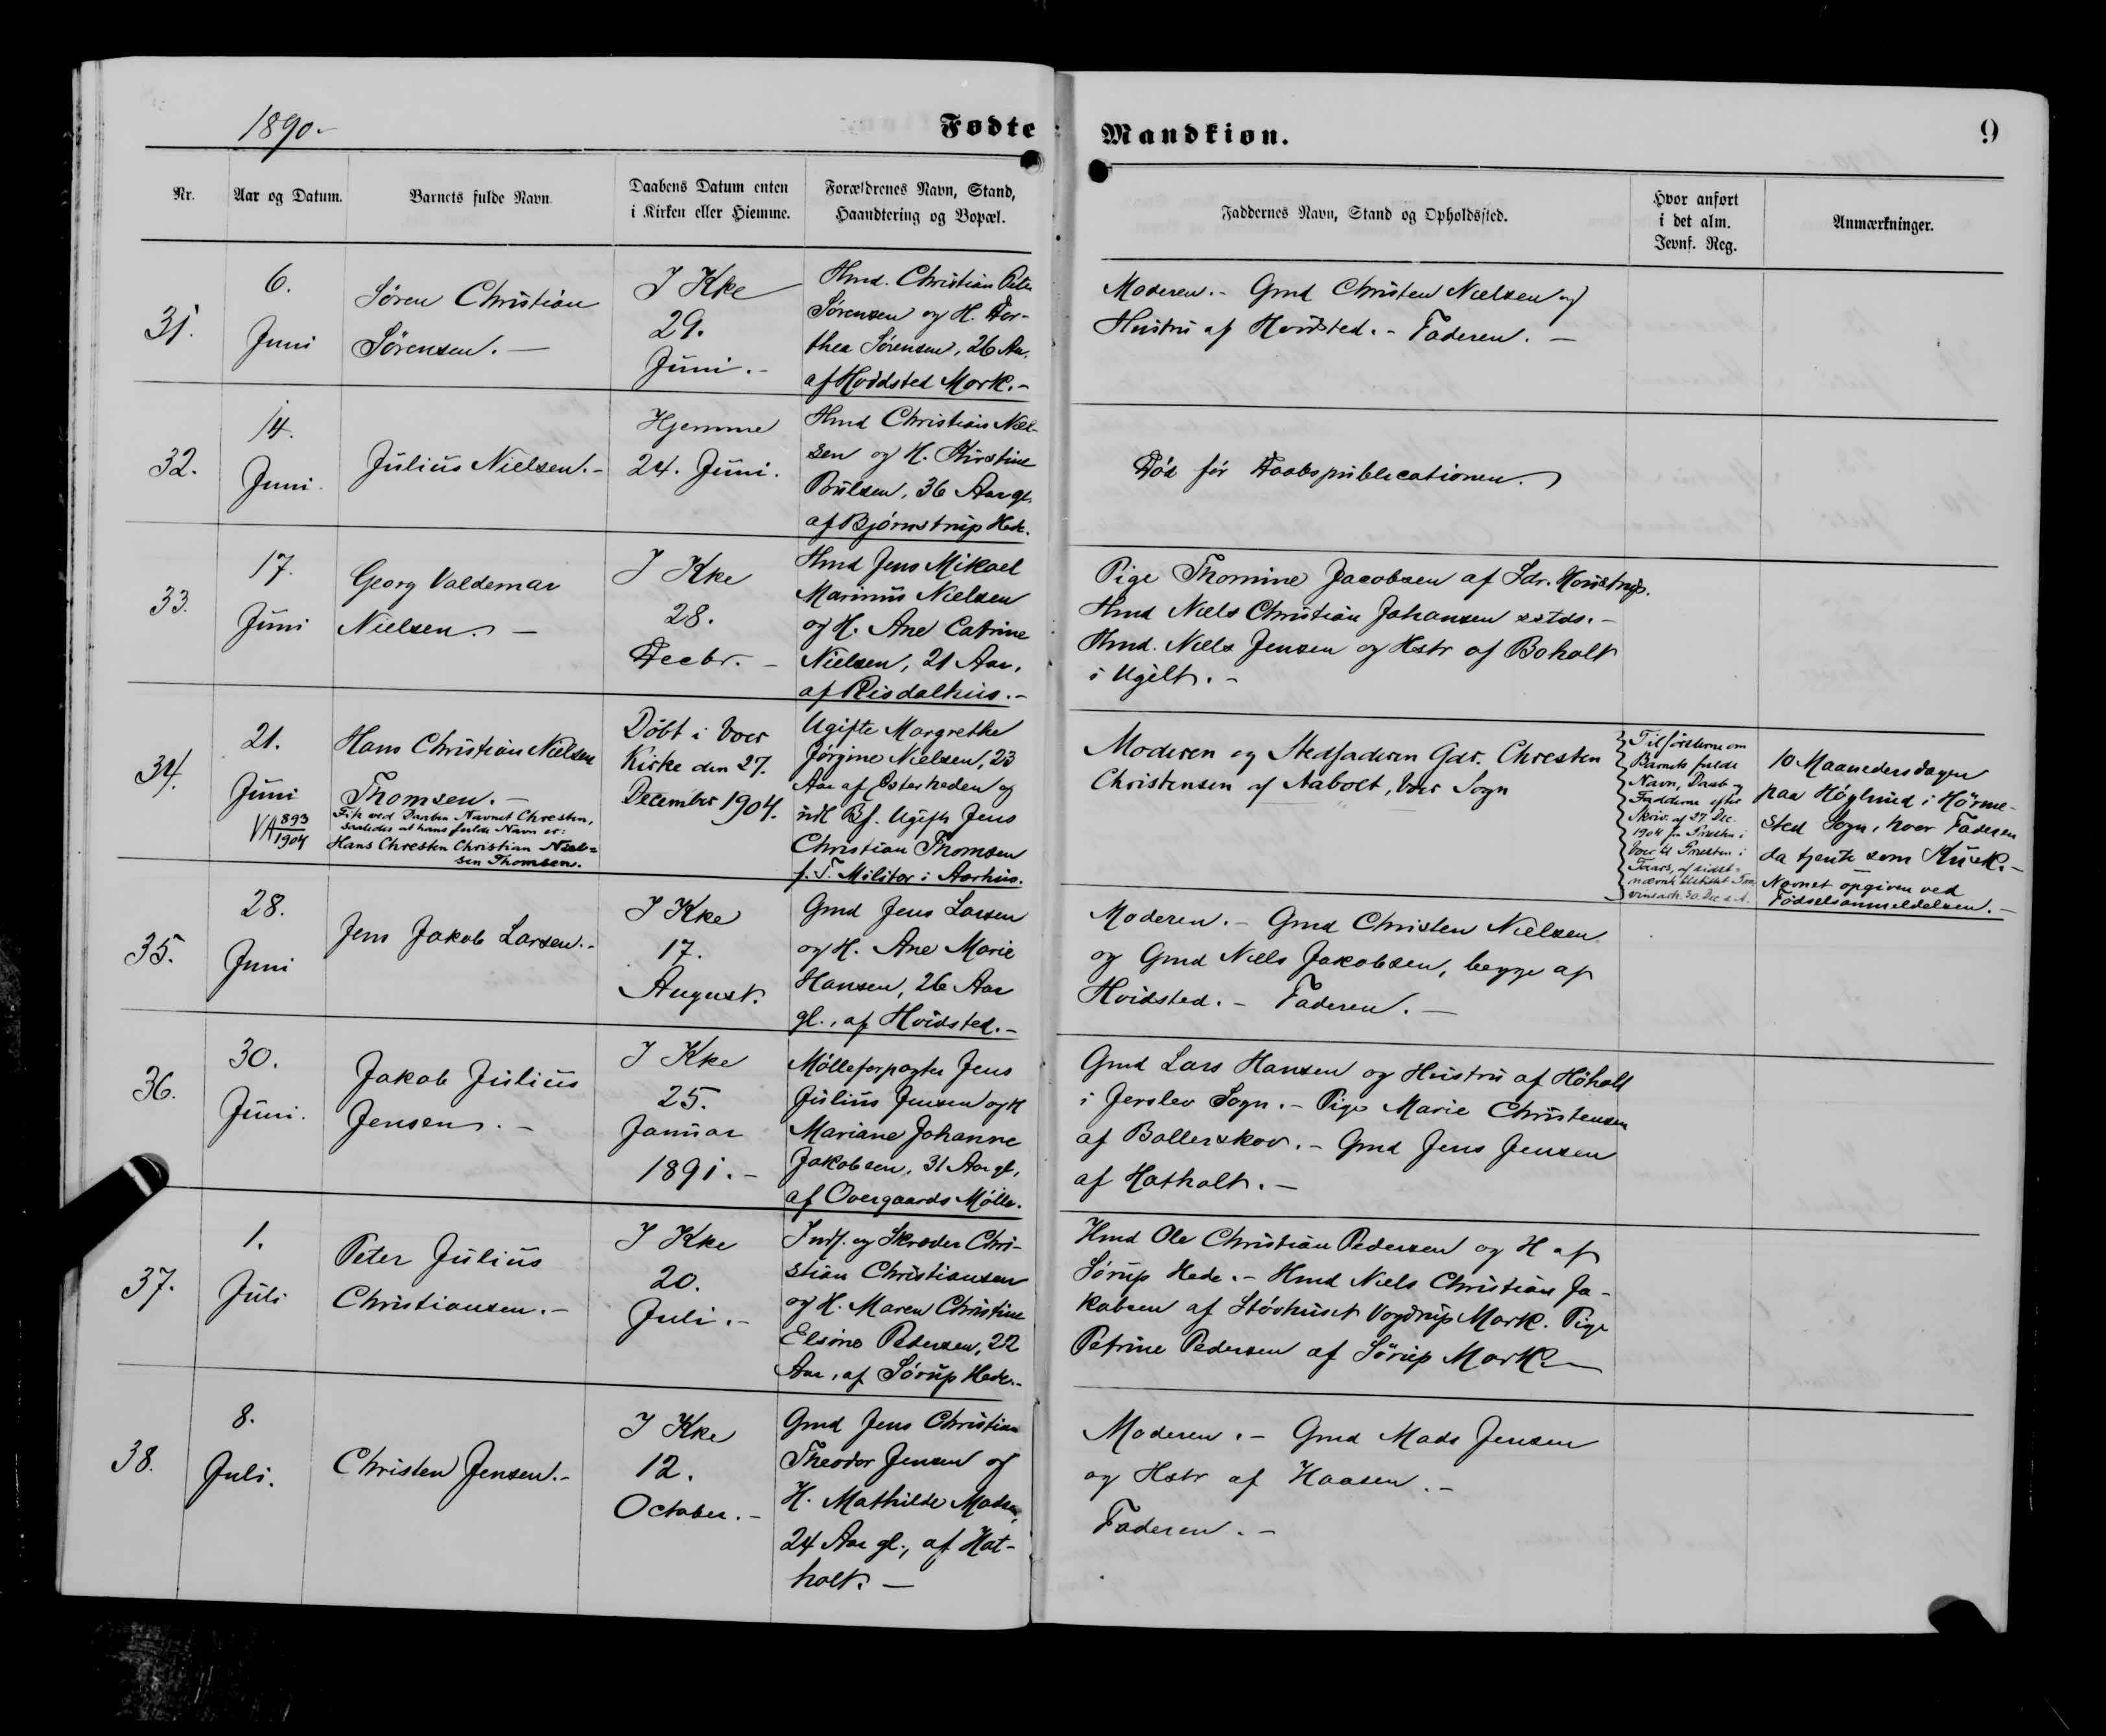 1890.-
Fødte
Mandkiøn.
9
Nr.
Aar og Datum.
Barnets fulde Navn
Daabens Datum enten
i Kirken eller Hiemme.
Forældrenes Navn, Stand,
Haandtering og Bopæl.
Faddernes Navn, Stand og Opholdssted.
Hvor anført
i det alm.
Jevnf. Reg.
Anmærkninger.
31.
6.
Juni
Søren Christian
Sørensen. -
I Kke
29.
Juni. -
Hmd. Christian Peter
Sørensen og H. Dor-
thea Sørensen, 26 Aar,
af Hvidsted Mark. -
Moderen. - Gmd Christen Nielsen og
Hustru af Hvidsted. - Faderen. -
32.
14.
Juni.
Julius Nielsen. -
Hjemme
24. Juni.
Hmd Christian Niel-
sen og H. Kirstine
Poulsen, 36 Aar gl.
af Bjørnstrup Hede.
Død før Daabspublicationen.
33.
17.
Juni
Georg Valdemar
Nielsen. -
I Kke
28.
Decbr. -
Hmd Jens Mikael
Marinus Nielsen
og H. Ane Catrine
Nielsen, 21 Aar,
af Risdalhus. -
Pige Thomine Jacobsen af Sdr.
Hmd Niels Christian Johansen sstds. -
Hmd. Niels Jensen og Hstr af Boholt
i Ugilt. -
34.
21.
Juni
VA 893/1904
Hans Christian Nielsen
Thomsen. -
Fik ved Daaben Navnet Chresten,
saaledes at hans fulde Navn er:
Hans Chresten Christian Niel-
sen Thomsen.
Døbt i Voer
Kirke den 27.
December 1904.
Ugifte Margrethe
Jørgine Nielsen, 23
Aar af Østerheden og
udl. Bf. Ugifte Jens
Christian Thomsen
f. T. Militær i Aarhus.
Moderen og Stedfaderen Gdr. Chresten
Christensen af Aabolt, Voer Sogn
Tilførslerne om
Barnets fulde
Navn, Daab og
Fadderne efter
Skriv. af 27. Dec.
1904 fra Præsten i
Voer til Præsten i
Taars, og sidst-
30. Dec s. A.
10 Maanedersdagen
paa Høglund i Hørme-
sted Sogn, hvor Faderen
da tjente som Kusk. -
Navnet opgiven ved
Fødselsanmeldelsen. -
35.
28.
Juni
Jens Jakob Larsen. -
I Kke
17.
August.
Gmd Jens Larsen
og H. Ane Marie
Hansen, 26 Aar
gl., af Hvidsted. -
Moderen. - Gmd Christen Nielsen
og Gmd Niels Jakobsen, begge af
Hvidsted. - Faderen. -
36.
30.
Juni.
Jakob Julius
Jensen. -
I Kke
25.
Januar
1891. -
Mølleforpagter Jens
Julius Jensen og H
Mariane Johanne
Jakobsen, 31 Aar gl,
af Overgaards Mølle.
Gmd Lars Hansen og Hustru af Høholt
i Jerslev Sogn. - Pige Marie Christensen
af Bollerskov. - Gmd Jens Jensen
af Hatholt. -
37.
1.
Juli
Peter Julius
Christiansen. -
I Kke
20.
Juli. -
Inds. og Skræder Chri-
stian Christiansen
og H. Maren Christine
Elsine Pedersen, 22
Aar, af Sørup Hede. -
Hmd Ole Christian Pedersen og H af
Sørup Hede. - Hmd Niels Christian Ja-
kobsen af Støvhuset Vogdrup Mark. Pige
Petrine Pedersen af Sørup Mark. -
38.
8.
Juli.
Christen Jensen. -
I Kke
12.
October. -
Gmd Jens Christian
Theodor Jensen og
H. Mathilde Madsen,
24 Aar gl., af Hat-
holt. -
Moderen. - Gmd Mads Jensen
og Hstr af Haasen. -
Faderen. -